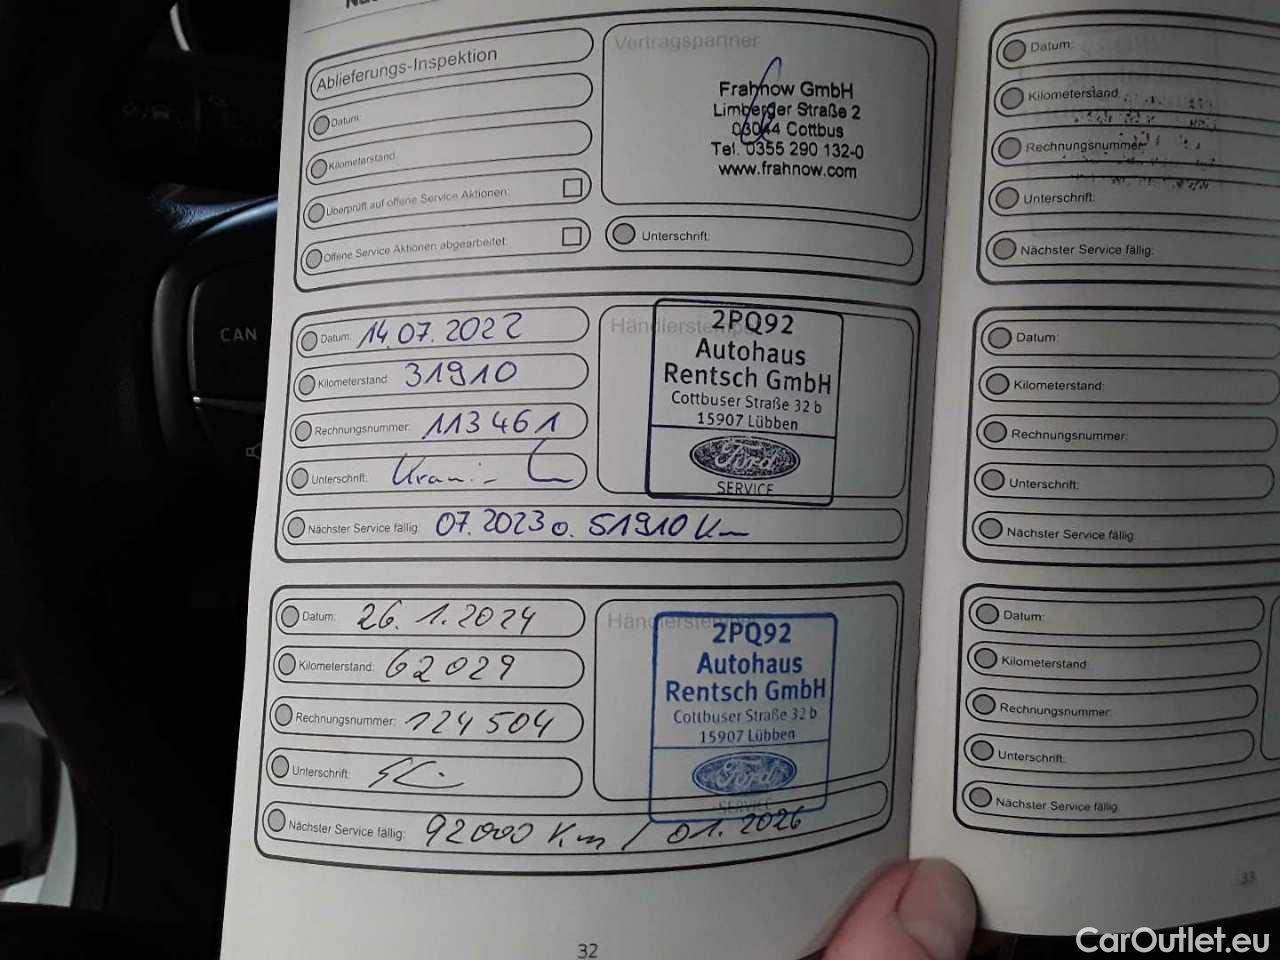 Ablieferungs-Inspektion
Datum:
Kilometerstand:
Überprüft auf offene Service Aktionen:
Offene Service Aktionen abgearbeitet:
Vertragspartner
Frahnow GmbH
Limberger Straße 2
03044 Cottbus
Tel. 0355 290 132-0
www.frahnow.com
Unterschrift:
Datum: 14.07.2022
Kilometerstand: 31910
Rechnungsnummer: 113461
Unterschrift:
Nächster Service fällig: 07.2023 o. 51910 Km
Händlerstempel
2PQ92
Autohaus
Rentsch GmbH
Cottbuser Straße 32 b
15907 Lübben
Ford
SERVICE
Datum: 26.1.2024
Kilometerstand: 62029
Rechnungsnummer: 124504
Unterschrift:
Nächster Service fällig: 92000 Km / 01.2026
Händlerstempel
2PQ92
Autohaus
Rentsch GmbH
Cottbuser Straße 32 b
15907 Lübben
Ford
SERVICE
32
Datum:
Kilometerstand:
Rechnungsnummer:
Unterschrift:
Nächster Service fällig:
Datum:
Kilometerstand:
Rechnungsnummer:
Unterschrift:
Nächster Service fällig
Datum:
Kilometerstand:
Rechnungsnummer:
Unterschrift:
Nächster Service fällig
33
CAN
CarOutlet.eu